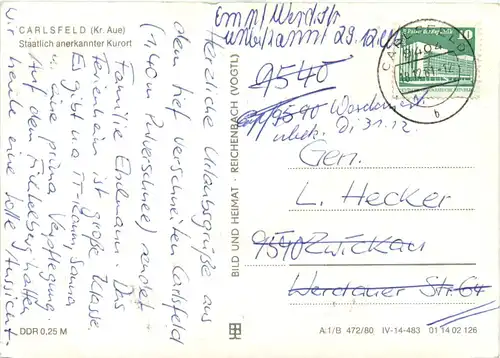 CARLSFELD (Kr. Aue)
Staatlich anerkannter Kurort
Herzliche Urlaubsgrüße aus
dem tief verschneiten Carlsfeld
(140 cm Pulverschnee) sendet
Familie Ehrlemann. Das
Ferienheim ist große Klasse.
Es gibt u.a. TT-Raum, Sauna
u. eine prima Verpflegung.
Auf dem Fichtelberg hatten
wir heute eine tolle Aussicht.
DDR 0,25 M
BILD UND HEIMAT · REICHENBACH (VOGTL)
Empf. Werdstr
unbekannt 29.12.
9540
9590 Werdauer
unbek. D, 31.12.
20
b
Gen.
L. Hecker
9540 Zwickau
Werdauer Str. 64
A:1/B 472/80 IV-14-483 01 14 02 126